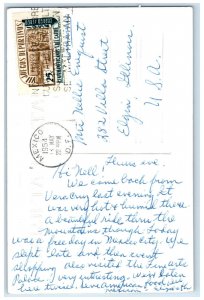 CORREOS MEXICO
MEXICO
1954
Mrs Nellie Enquist
382 Villa Street
Elgin, Illinois
U.S.A.
Thurs eve.
Hi Nell!
We came back from
Veracruz last evening it
was very hot & humid there
a beautiful ride thru the
mountains though. Today
was a free day in Mexico City. We
slept late and then went
shopping. Also visited the
very interesting. We've eaten
here twice. American food,